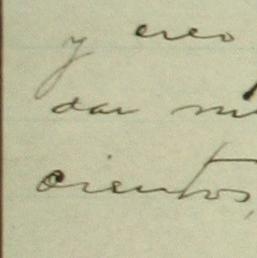 y creo
dar mi
cientos,